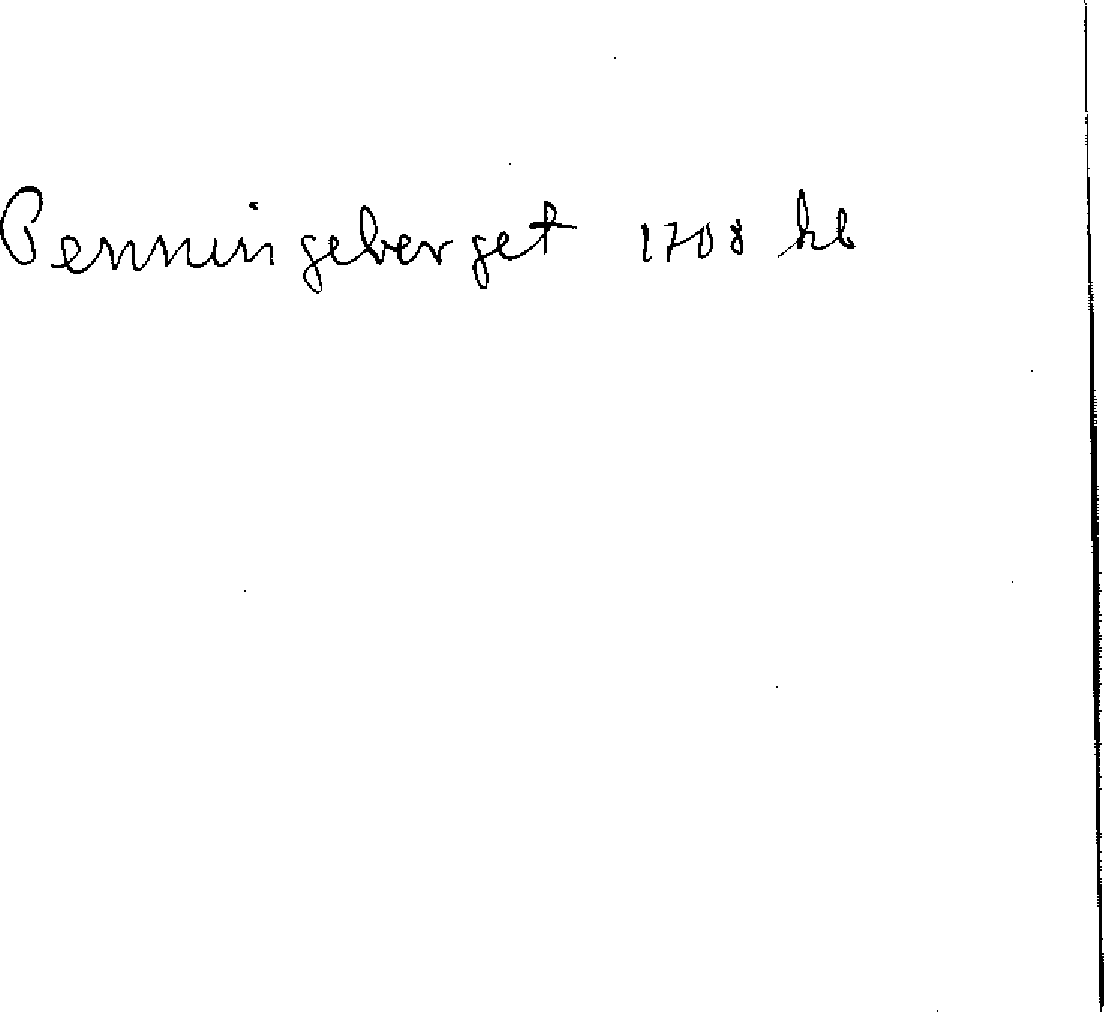 Penningeberget 1708 kb